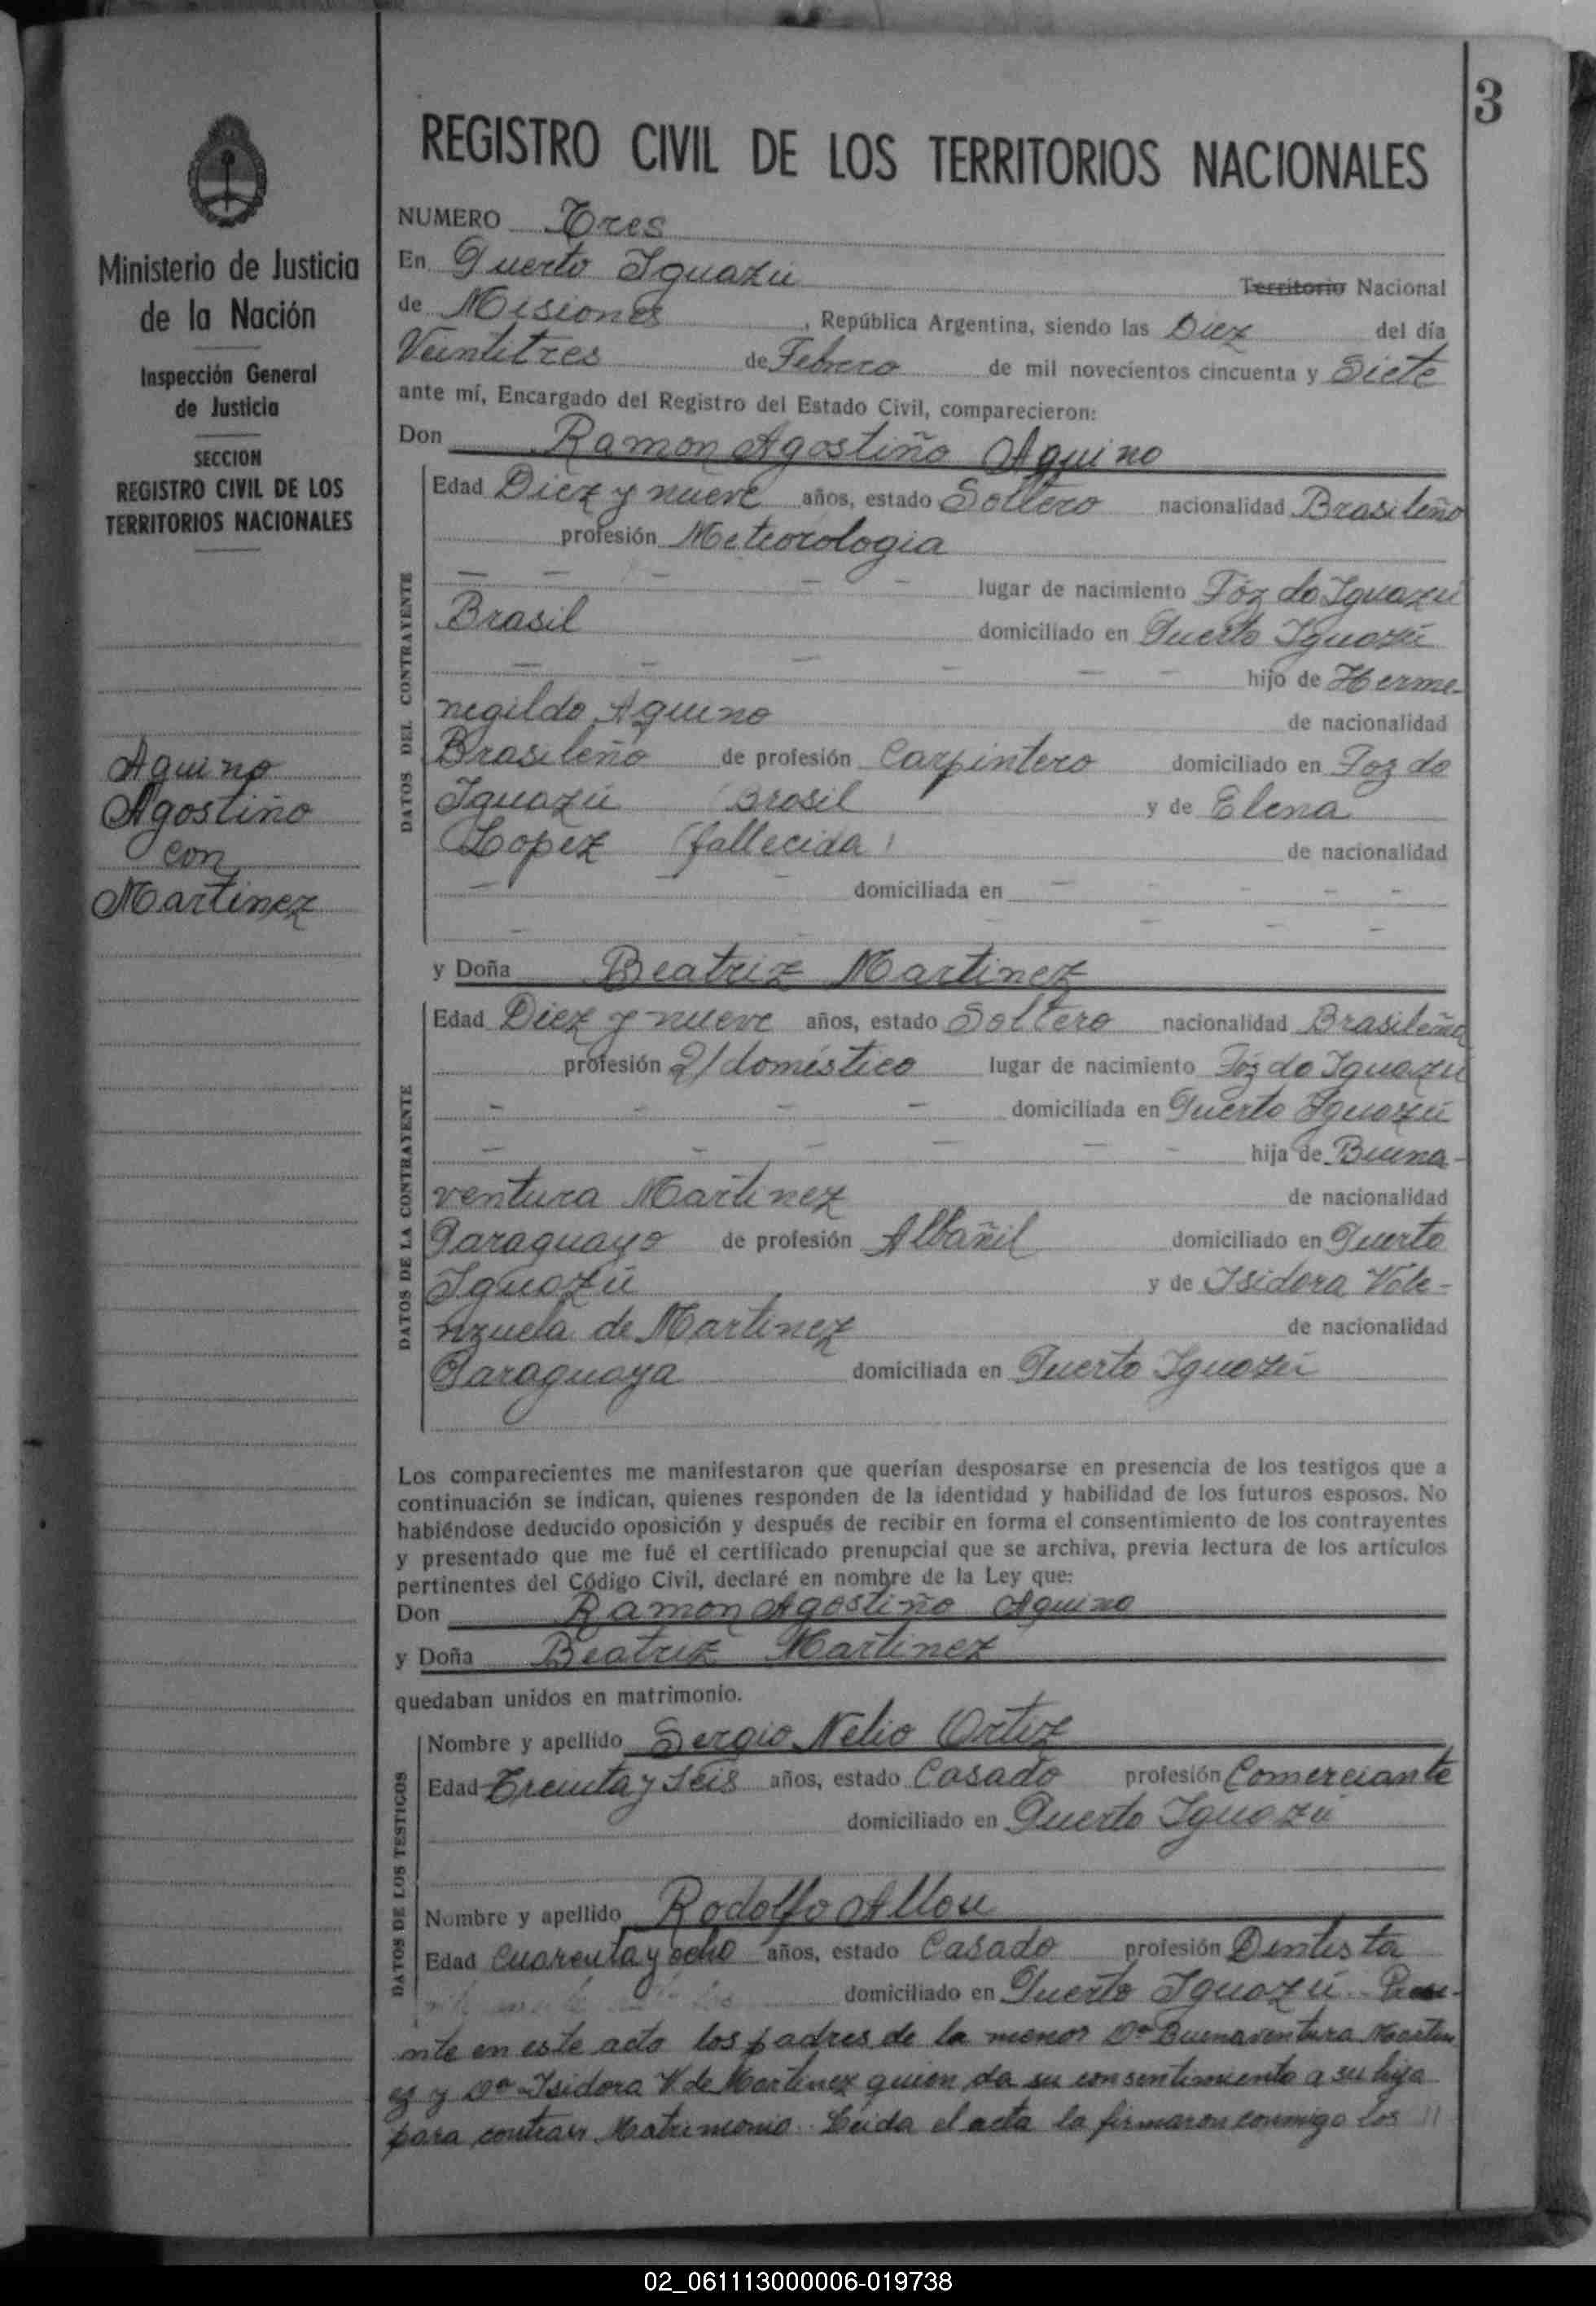 3
REGISTRO CIVIL DE LOS TERRITORIOS NACIONALES
Ministerio de Justicia
de la Nación
Inspección General
de Justicia
SECCION
REGISTRO CIVIL DE LOS
TERRITORIOS NACIONALES
Aquino
Agostiño
con
Martinez
NUMERO Tres
En Puerto Iguazú Territorio Nacional
de Misiones, República Argentina, siendo las Diez del día
Veintitres de Febrero de mil novecientos cincuenta y Siete
ante mí, Encargado del Registro del Estado Civil, comparecieron:
Don Ramon Agostiño Aquino
DATOS DEL CONTRAYENTE
Edad Diez y nueve años, estado Soltero nacionalidad Brasileño
profesión Meteorologia
lugar de nacimiento Fóz do Iguazú
Brasil domiciliado en Puerto Iguazú
hijo de Herme-
negildo Aquino de nacionalidad
Brasileño de profesión Carpintero domiciliado en Foz do
Iguazú Brasil y de Elena
Lopez (fallecida) de nacionalidad
domiciliada en
y Doña Beatriz Martinez
DATOS DE LA CONTRAYENTE
Edad Diez y nueve años, estado Soltero nacionalidad Brasileña
profesión Q/doméstico lugar de nacimiento Fóz do Iguazú
domiciliada en Puerto Iguazú
hija de Buena-
ventura Martinez de nacionalidad
Paraguayo de profesión Albañil domiciliado en Puerto
Iguazú y de Isidora Vale-
nzuela de Martinez de nacionalidad
Paraguaya domiciliada en Puerto Iguazú
Los comparecientes me manifestaron que querían desposarse en presencia de los testigos que a
continuación se indican, quienes responden de la identidad y habilidad de los futuros esposos. No
habiéndose deducido oposición y después de recibir en forma el consentimiento de los contrayentes
y presentado que me fué el certificado prenupcial que se archiva, previa lectura de los artículos
pertinentes del Código Civil, declaré en nombre de la Ley que:
Don Ramon Agostiño Aquino
y Doña Beatriz Martinez
quedaban unidos en matrimonio.
DATOS DE LOS TESTIGOS
Nombre y apellido Sergio Nelio Ortiz
Edad Treinta y Seis años, estado Casado profesión Comerciante
domiciliado en Puerto Iguazú
Nombre y apellido Rodolfo Allou
Edad Cuarenta y ocho años, estado Casado profesión Dentista
domiciliado en Puerto Iguazú. Prese-
nte en este acto los padres de la menor Dn Buenaventura Martin
ez y Da Isidora V de Martinez quien da su consentimiento a su hija
para contraer Matrimonio. Leida el acta la firmaron conmigo los //
02_061113000006-019738